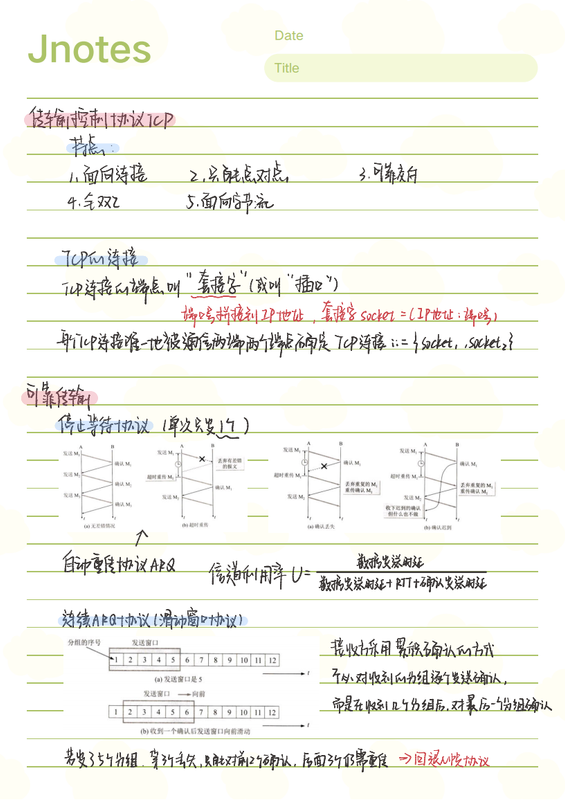 Jnotes
Date
Title
传输控制协议TCP
特点:
1. 面向连接 2. 只能点对点 3. 可靠交付
4. 全双工 5. 面向字节流
TCP的连接
TCP连接的端点叫"套接字"(或叫"插口")
端口号拼接到IP地址,套接字 socket = (IP地址:端口号)
每一TCP连接唯一地被通信两端两个端点所确定 TCP连接 ::= {socket₁, socket₂}
可靠传输
停止等待协议 (单次只发1个)
A B A B A B A B
发送 M₁ 确认 M₁ 发送 M₂ 确认 M₂ 发送 M₃ 确认 M₃ t t
发送 M₁ 丢弃有差错的报文 超时重传 M₁ 确认 M₁ 发送 M₂ t t
发送 M₁ 确认 M₁ 超时重传 M₁ 丢弃重复的 M₁ 重传确认 M₁ 发送 M₂ t t
发送 M₁ 确认 M₁ 超时重传 M₁ 丢弃重复的 M₁ 重传确认 M₁ 发送 M₂ 收下迟到的确认 但什么也不做 t t
(a) 无差错情况 (b) 超时重传 (a) 确认丢失 (b) 确认迟到
自动重传协议ARQ 信道利用率 U = 数据发送时延
数据发送时延 + RTT + 确认发送时延
连续ARQ协议(滑动窗口协议)
分组的序号 发送窗口
1 2 3 4 5 6 7 8 9 10 11 12
t
(a) 发送窗口是 5
发送窗口 向前
1 2 3 4 5 6 7 8 9 10 11 12
t
(b) 收到一个确认后发送窗口向前滑动
接收方采用累积确认的方式
不必对收到的分组逐个发送确认,
而是在收到几个分组后,对最后一个分组确认
若发了5个分组,第3个丢失,只能对前2个确认,后面3个仍需重传 → 回退N步协议